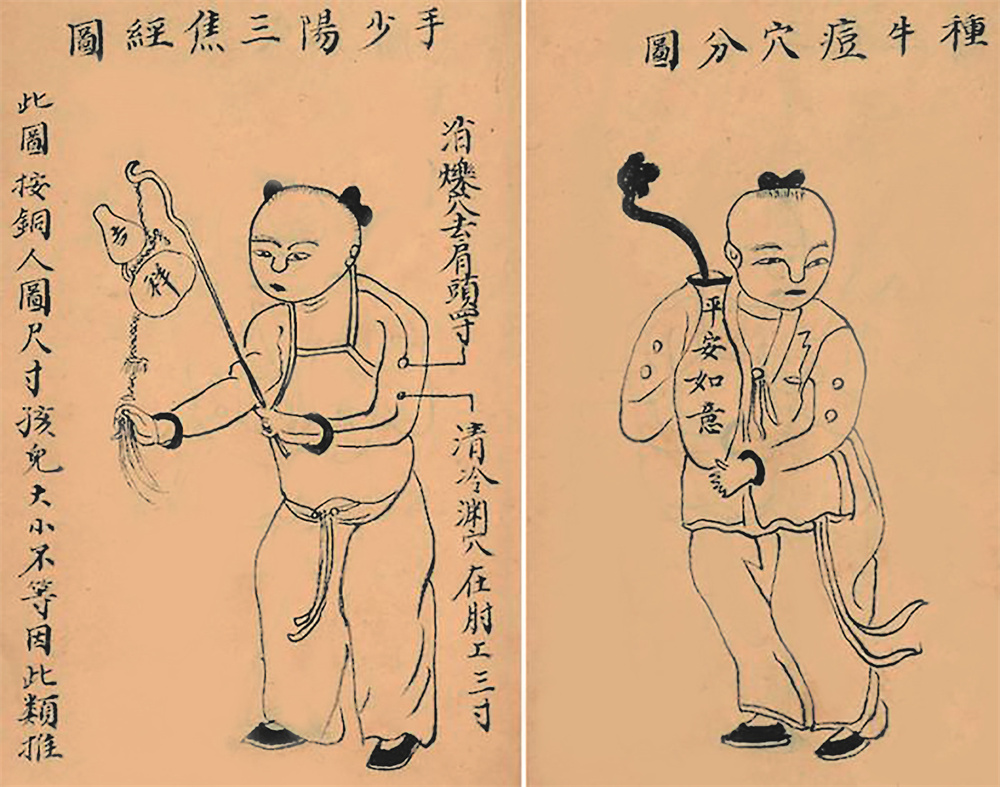 種牛痘穴分圖
平安如意
手少陽三焦經圖
消爍穴去肩頭四寸
清冷渊穴在肘上三寸
吉
祥
此圖按銅人圖尺寸孩兒大小不等因此類推